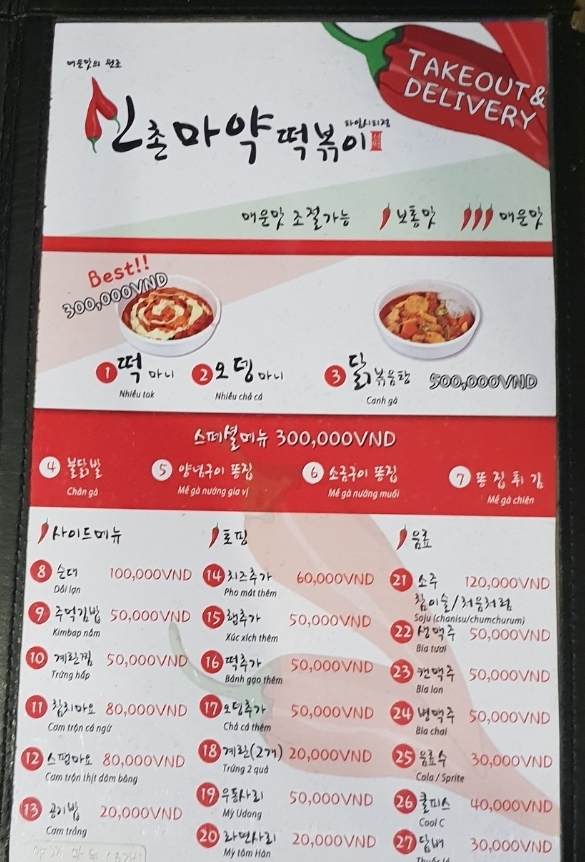 매운맛의 원조
TAKEOUT&
DELIVERY
신촌마약떡볶이
매운맛 조절가능 보통맛 매운맛
Best!!
300,000VND
1 떡마니 2 오뎅마니 3 닭볶음탕 500,000VND
Nhiều tok Nhiều chả cá Canh gà
스페셜메뉴 300,000VND
4 불닭발 5 양념구이 똥집 6 소금구이 똥집 7 똥집튀김
Chân gà Mề gà nướng gia vị Mề gà nướng muối Mề gà chiên
사이드메뉴
8 순대 100,000VND
Dồi lợn
9 주먹김밥 50,000VND
Kimbap nắm
10 계란찜 50,000VND
Trứng hấp
11 참치마요 80,000VND
Cơm trộn cá ngừ
12 스팸마요 80,000VND
Cơm trộn thịt dăm bông
13 공기밥 20,000VND
Cơm trắng
토핑
14 치즈추가 60,000VND
Pho mát thêm
15 햄추가 50,000VND
Xúc xích thêm
16 떡추가 50,000VND
Bánh gạo thêm
17 오뎅추가 50,000VND
Chả cá thêm
18 계란(2개) 20,000VND
Trứng 2 quả
19 우동사리 50,000VND
Mỳ Udong
20 라면사리 20,000VND
Mỳ tôm Hàn
음료
21 소주 120,000VND
참이슬/처음처럼
Soju (chamisu/chumchurum)
22 생맥주 50,000VND
Bia tươi
23 캔맥주 50,000VND
Bia lon
24 병맥주 50,000VND
Bia chai
25 음료수 30,000VND
Cola / Sprite
26 쿨피스 40,000VND
Cool C
27 담배 30,000VND